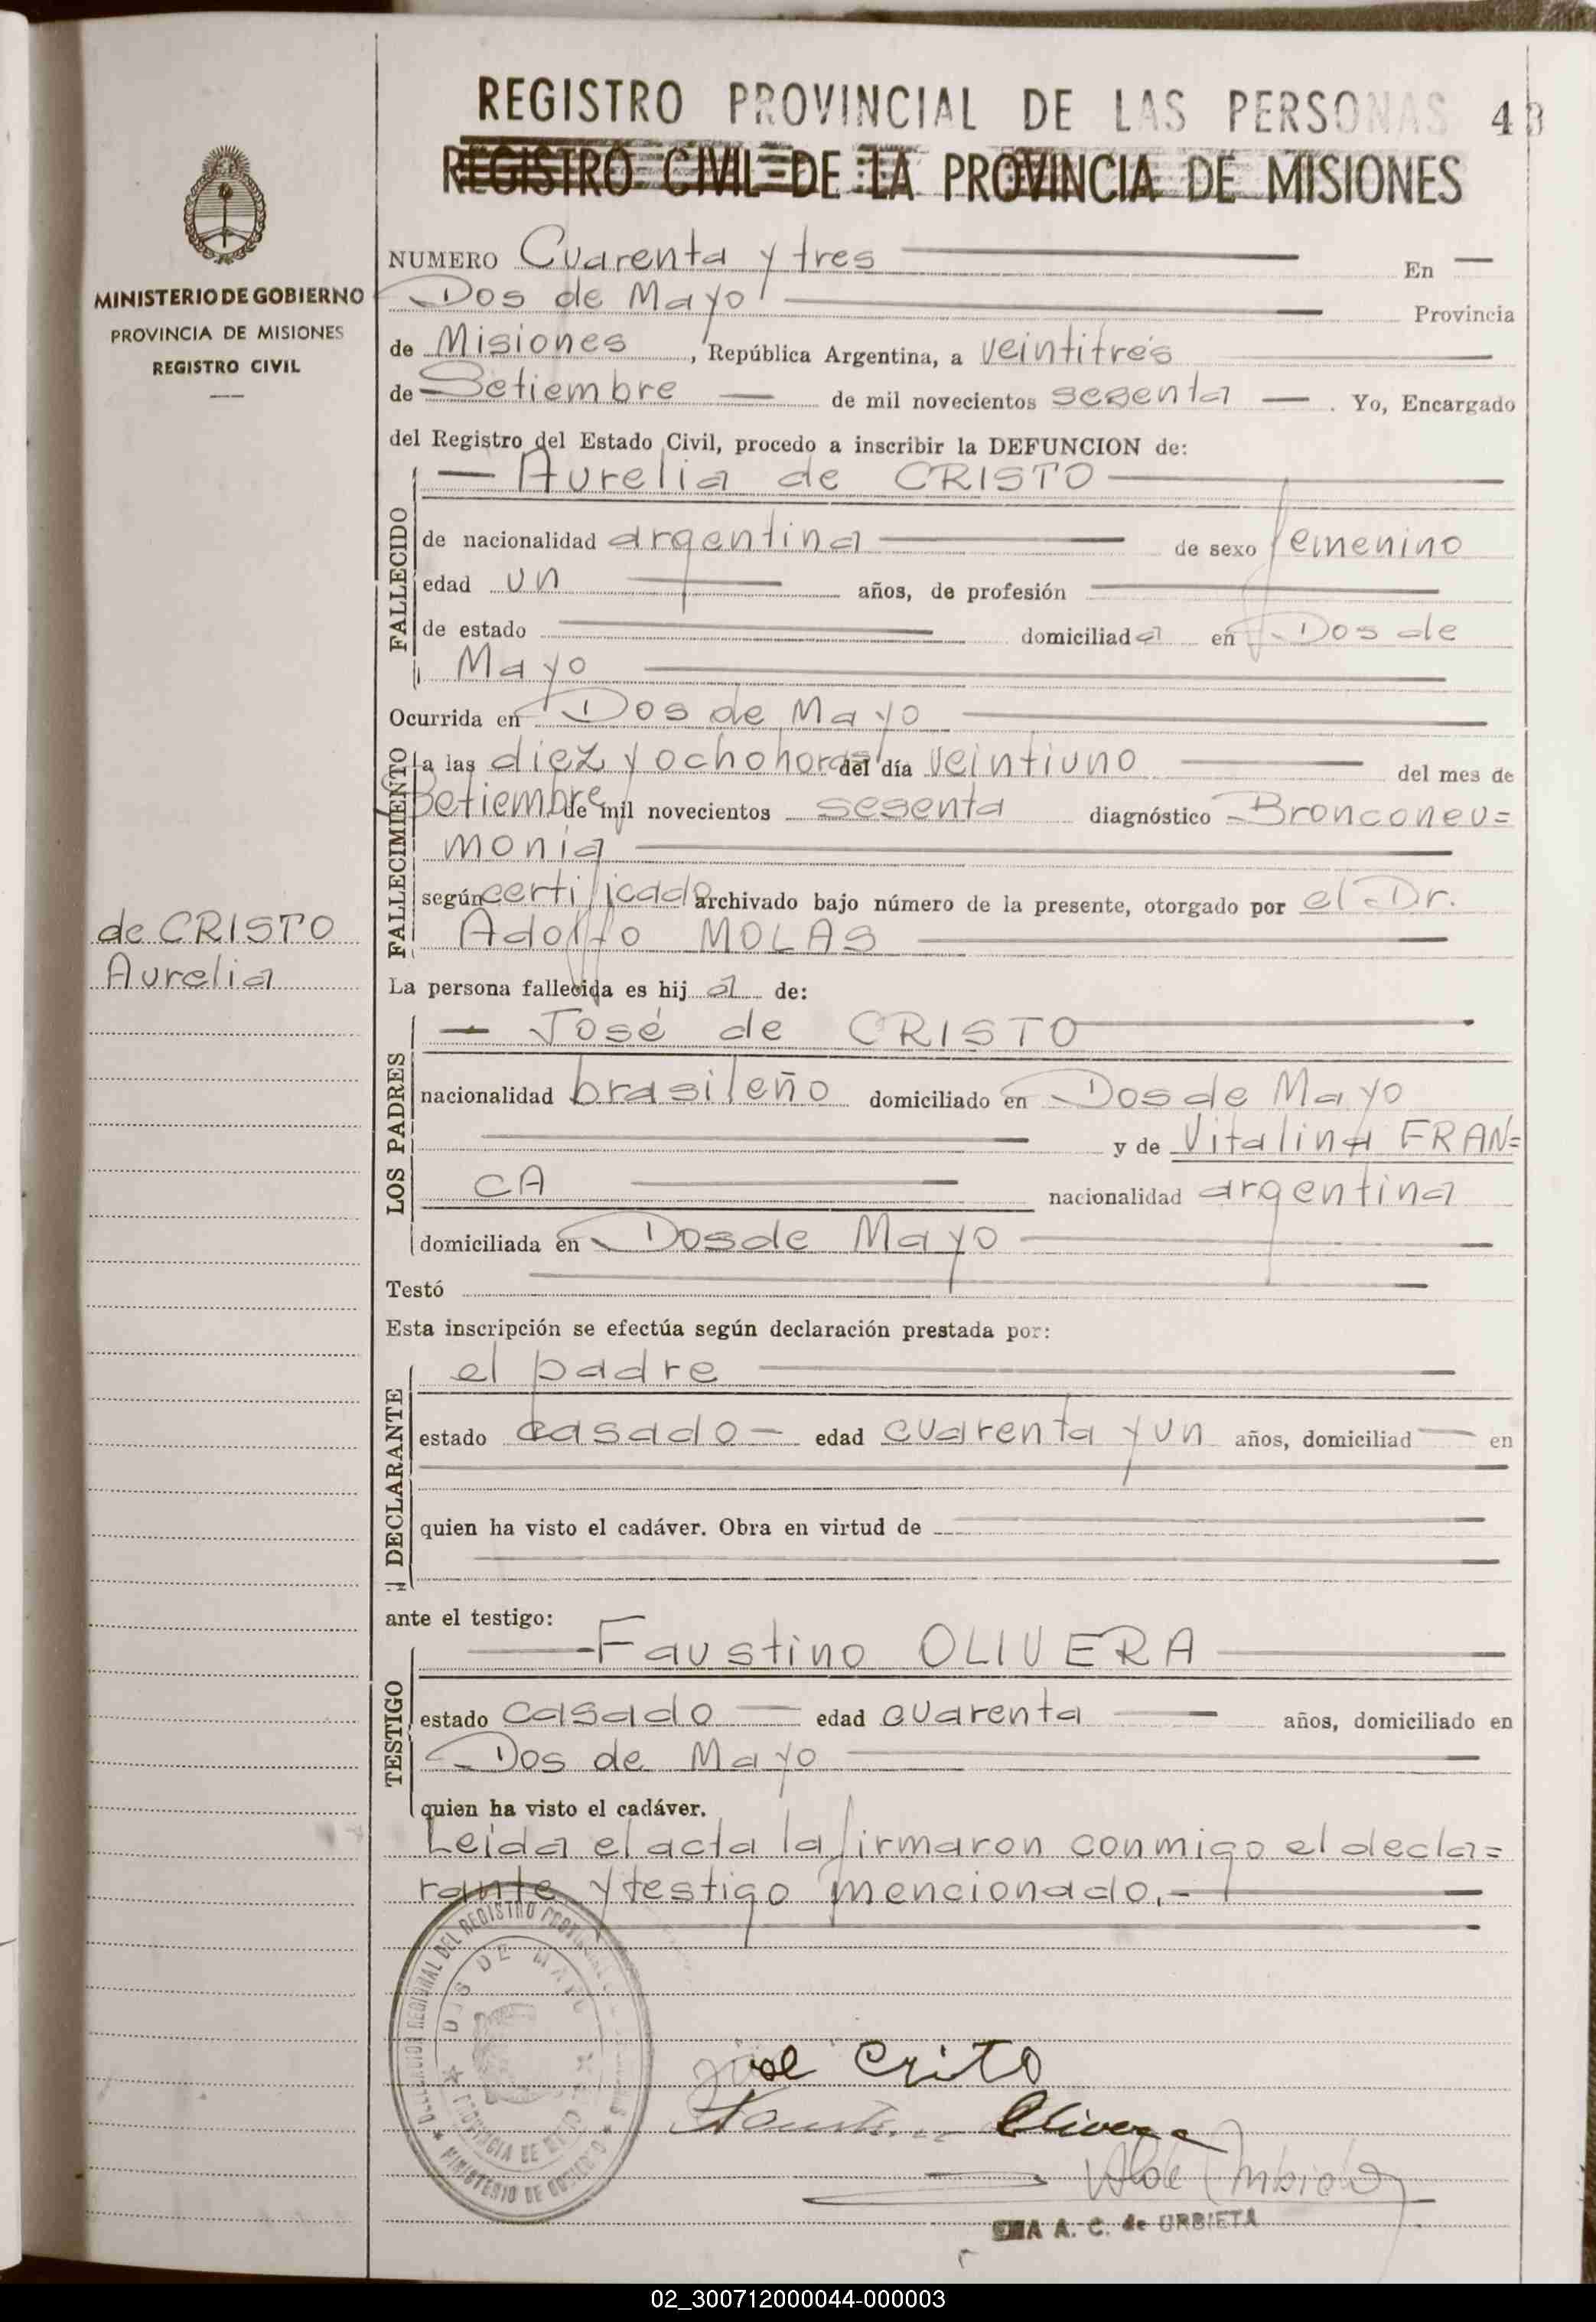 REGISTRO PROVINCIAL DE LAS PERSONAS 43
REGISTRO CIVIL DE LA PROVINCIA DE MISIONES
MINISTERIO DE GOBIERNO
PROVINCIA DE MISIONES
REGISTRO CIVIL
NUMERO Cuarenta y tres En
Dos de Mayo Provincia
de Misiones, República Argentina, a veintitrés
de Setiembre de mil novecientos sesenta. Yo, Encargado
del Registro del Estado Civil, procedo a inscribir la DEFUNCION de:
FALLECIDO
Aurelia de CRISTO
de nacionalidad argentina de sexo femenino
edad un años, de profesión
de estado domiciliada en Dos de
Mayo
FALLECIMIENTO
Ocurrida en Dos de Mayo
a las diez y ocho horas del día veintiuno del mes de
Setiembre de mil novecientos sesenta diagnóstico Bronconeu=
monia
según certificado archivado bajo número de la presente, otorgado por el Dr.
Adolfo MOLAS
de CRISTO
Aurelia
La persona fallecida es hija de:
LOS PADRES
José de CRISTO
nacionalidad brasileño domiciliado en Dos de Mayo
y de Vitalina FRAN=
CA nacionalidad argentina
domiciliada en Dos de Mayo
Testó
Esta inscripción se efectúa según declaración prestada por:
DECLARANTE
el padre
estado casado edad cuarenta y un años, domiciliad en
quien ha visto el cadáver. Obra en virtud de
ante el testigo:
TESTIGO
Faustino OLIVERA
estado casado edad cuarenta años, domiciliado en
Dos de Mayo
quien ha visto el cadáver.
Leida el acta la firmaron conmigo el decla=
rante y testigo mencionado.-
DELEGACION REGIONAL DEL REGISTRO
DOS DE MAYO
PROVINCIA DE
MINISTERIO DE GOBIERNO
José Crito
Olivera
A. C. de URBIETA
02_300712000044-000003